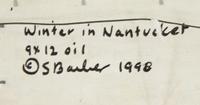 Winter in Nantucket
9x12 oil
© S Barber 1998